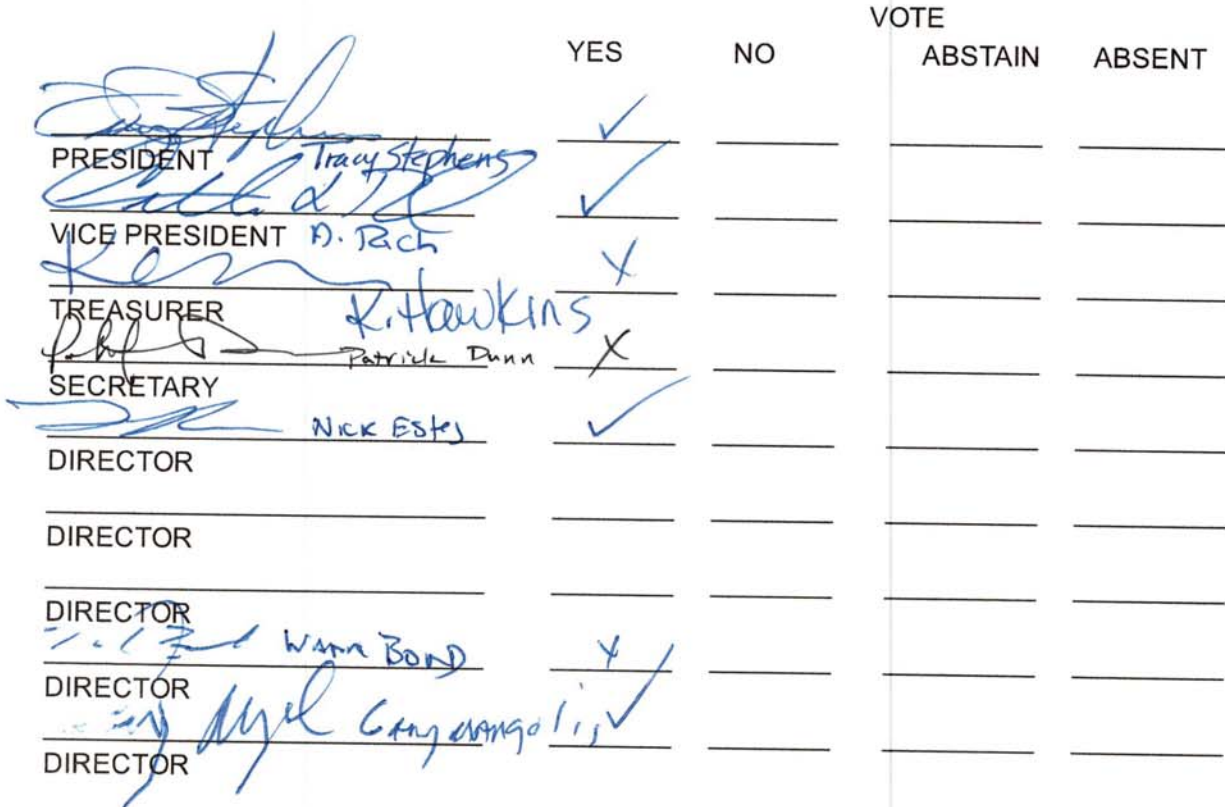 VOTE
YES NO ABSTAIN ABSENT
✓
PRESIDENT Tracy Stephens
✓
VICE PRESIDENT A. Rich
X
TREASURER K. Hawkins
Patrick Dunn X
SECRETARY
Nick Estes ✓
DIRECTOR
DIRECTOR
DIRECTOR
BOND X
DIRECTOR
✓
DIRECTOR